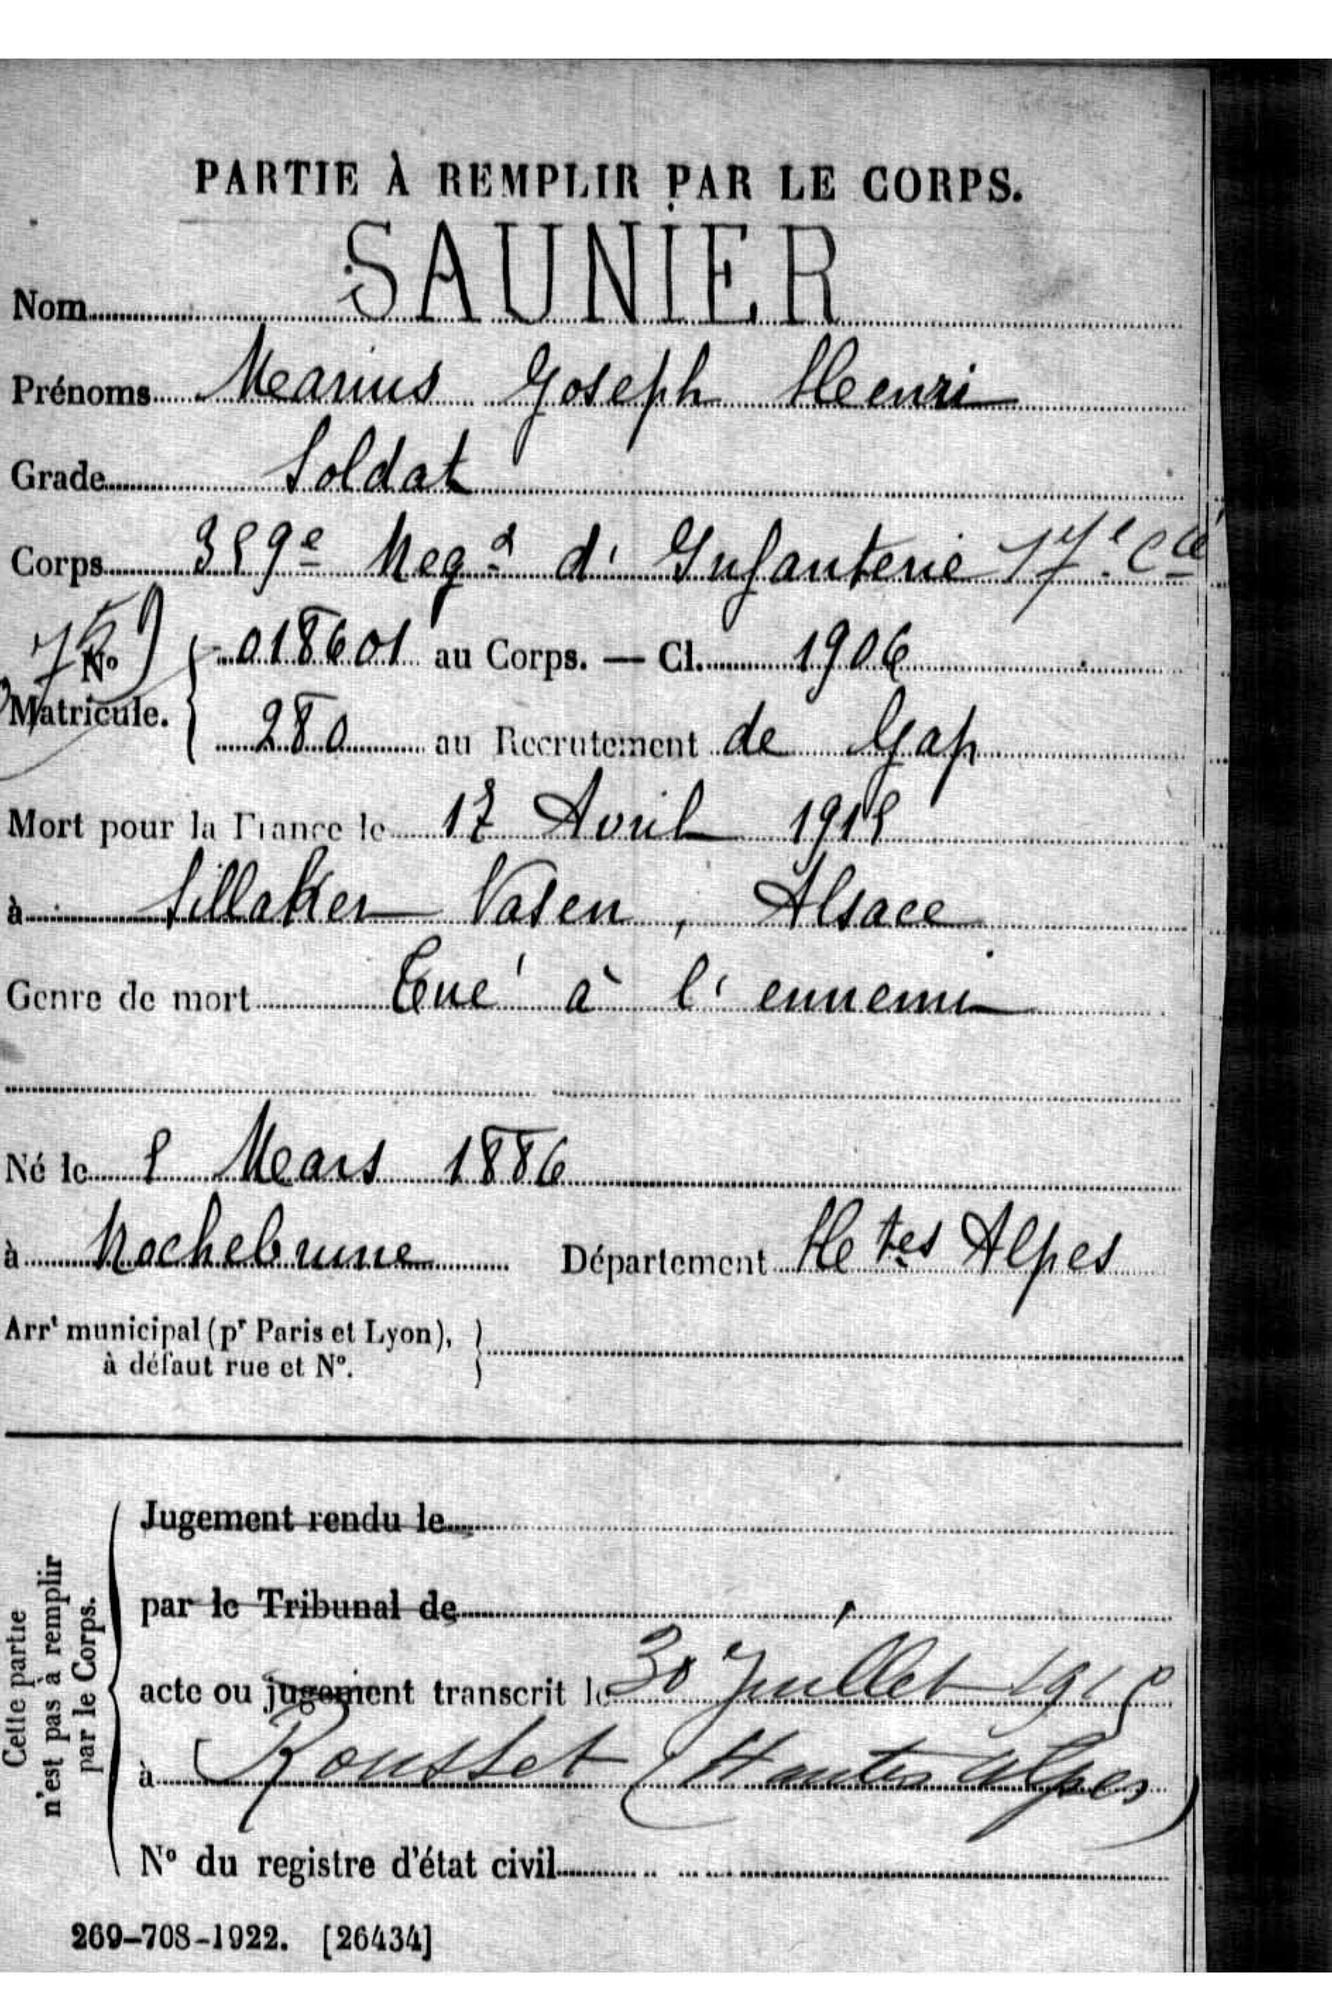 PARTIE À REMPLIR PAR LE CORPS.
Nom SAUNIER
Prénoms Marius Joseph Henri
Grade Soldat
Corps 359e Regt d'Infanterie 17e Cie
No 018601 au Corps. — Cl. 1906
Matricule. 280 au Recrutement de Gap
Mort pour la France le 17 Avril 1915
à Sillaker Vasen, Alsace
Genre de mort Tué à l'ennemi
Né le 5 Mars 1886
à Rochebrune Département Htes Alpes
Arrt municipal (pr Paris et Lyon),
à défaut rue et N°.
Cette partie
n'est pas à remplir
par le Corps.
Jugement rendu le
par le Tribunal de
acte ou jugement transcrit le 30 Juillet 1915
à Rousset (Hautes Alpes)
N° du registre d'état civil
269-708-1922. [26434]